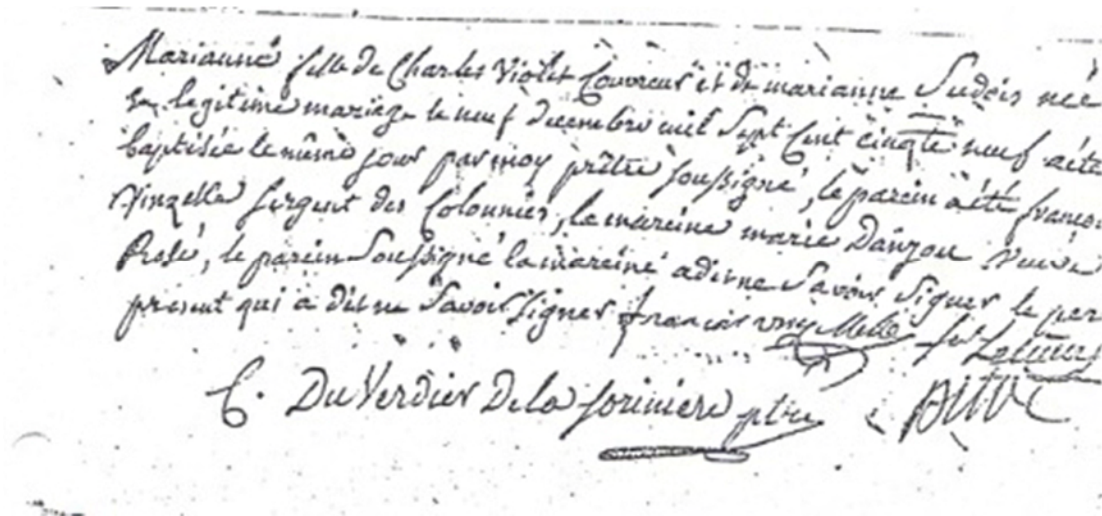 Marianne fille de Charles Violet Couvreur et de marianne Sudois née
en legitime mariage le neuf decembre mil Sept Cent cinqte neuf a été
baptisée le même jour par moy prêtre soussigné, le parein a été françois
Vinzelle sergent des Colonnies, la mareine marie Danjou veuve
Rosé, le parein Soussigné la mareine a dit ne savoir signer le per
present qui a dit ne savoir signer françois
C. Du Verdier De la Soriniere ptre